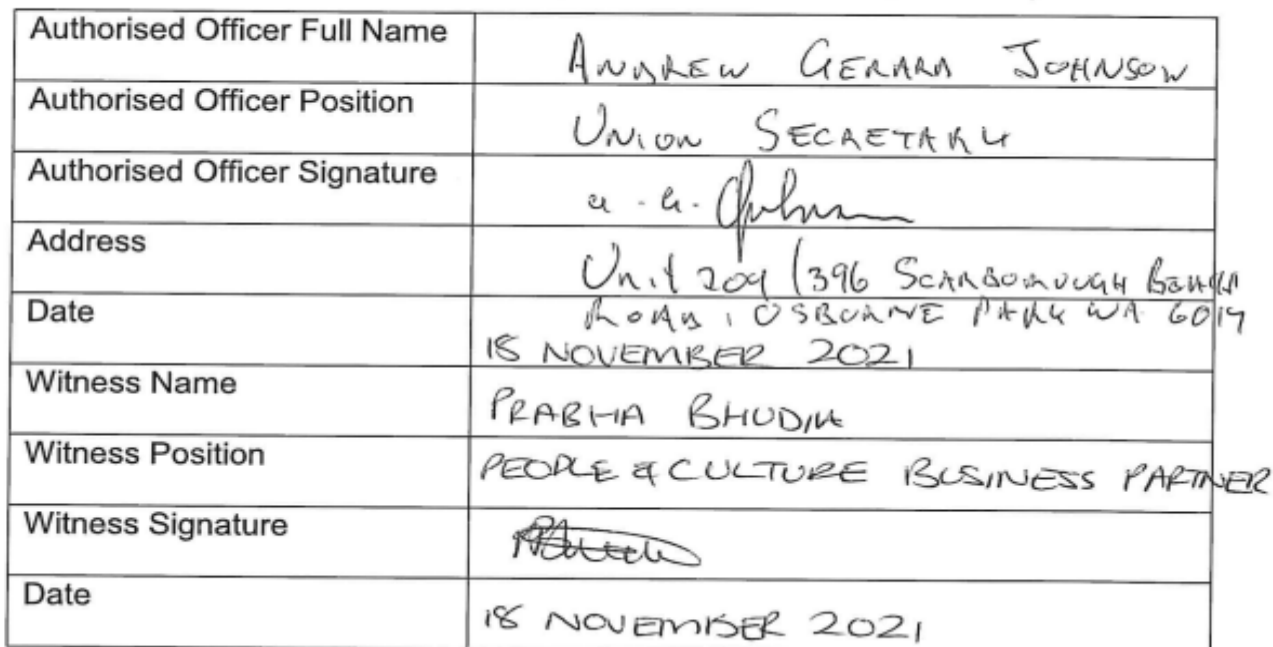 Authorised Officer Full Name
ANDREW GERARD JOHNSON
Authorised Officer Position
UNION SECRETARY
Authorised Officer Signature
a. G. Johnson
Address
Unit 209/396 SCARBOROUGH BEACH
ROAD, OSBORNE PARK WA 6017
Date
18 NOVEMBER 2021
Witness Name
PRABHA BHUDIA
Witness Position
PEOPLE & CULTURE BUSINESS PARTNER
Witness Signature
Date
18 NOVEMBER 2021